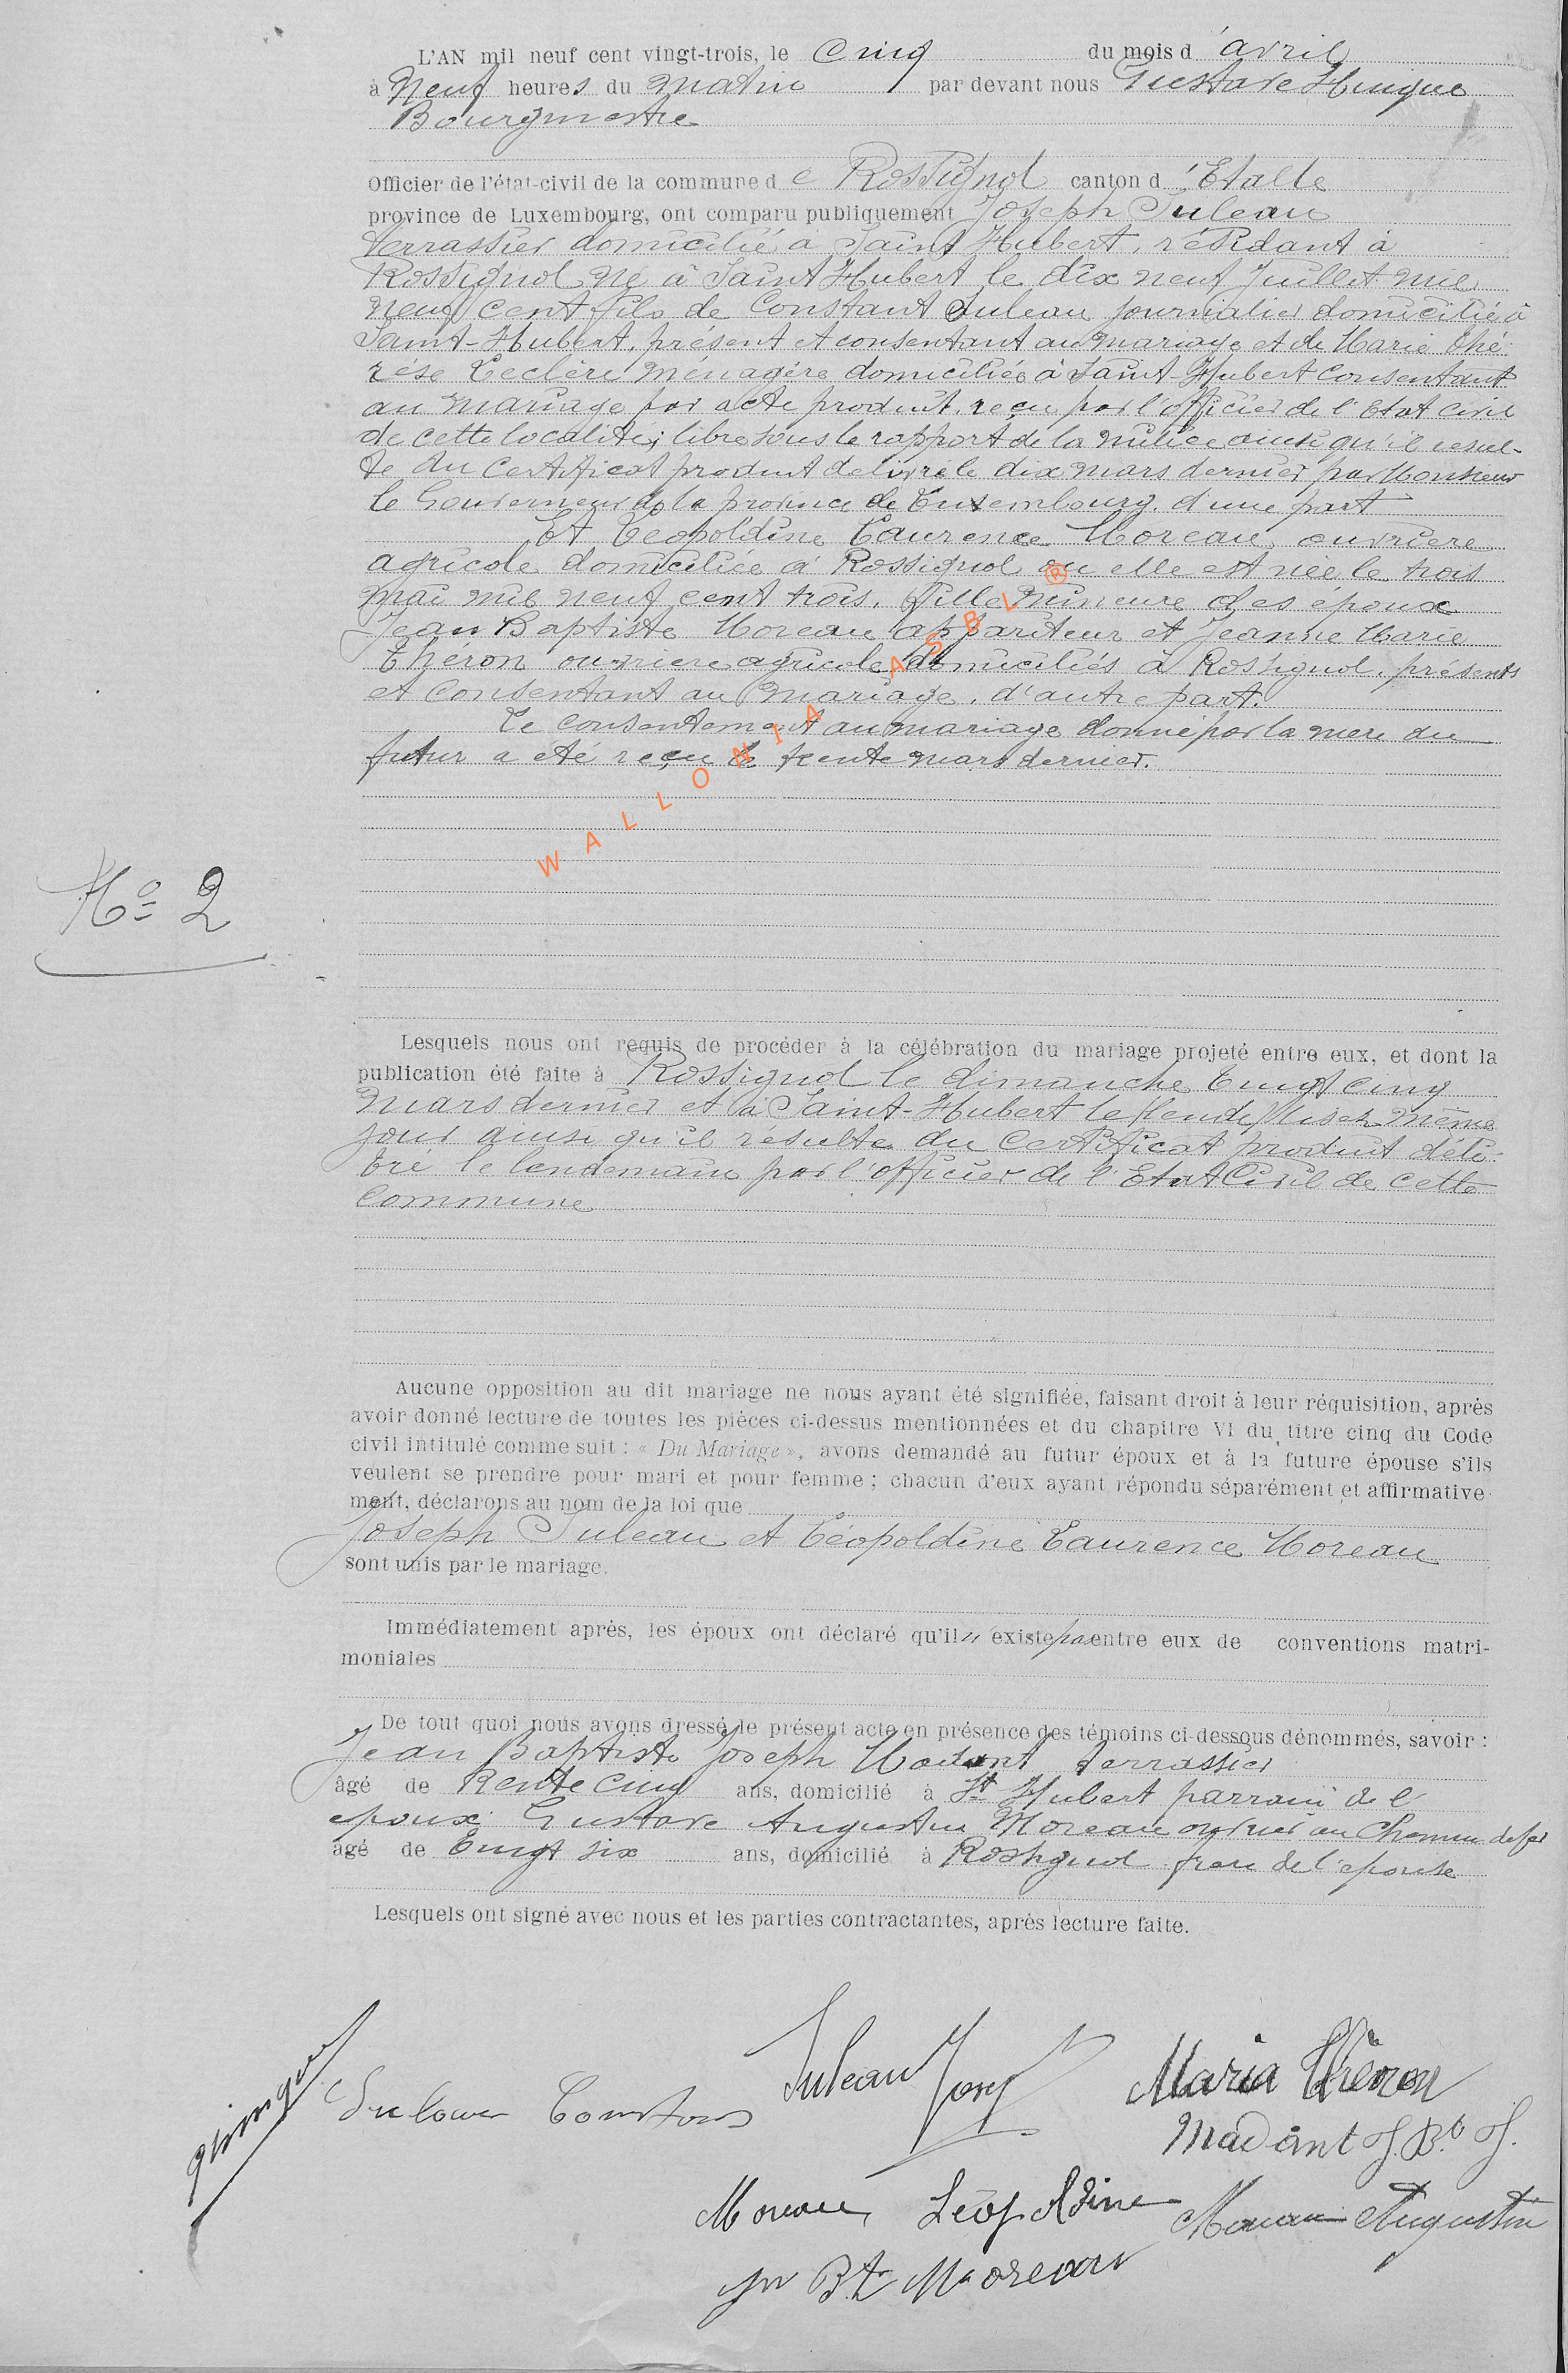 L'AN mil neuf cent vingt-trois, le cinq du mois d'avril
à Neuf heures du matin par devant nous Gustave Hinque
Bourgmestre
Officier de l'état-civil de la commune de Rossignol canton d'Etalle
province de Luxembourg, ont comparu publiquement Joseph Suleau
terrassier domicilié à Saint Hubert, résidant à
Rossignol né à Saint Hubert le dix neuf Juillet mil
neuf cent fils de Constant Suleau journalier domicilié à
Saint-Hubert, présent et consentant au mariage et de Marie Thé-
rèse Leclère ménagère domiciliée à Saint-Hubert consentant
au mariage par acte produit, reçu par l'officier de l'Etat civil
de cette localité; libre sous le rapport de la milice ainsi qu'il resul-
te du certificat produit delivré le dix mars dernier par Monsieur
le Gouverneur de la province de Luxembourg, d'une part
Et Léopoldine Laurence Moreau, ouvrière
agricole domiciliée à Rossignol ou elle est née le trois
mai mil neuf cent trois, fille mineure des époux
Jean Baptiste Moreau appariteur et Jeanne Marie
Théron ouvrière agricole domiciliés à Rossignol, présents
et consentant au mariage, d'autre part.
Le consentement au mariage donné par la mère du
futur a été reçu le trente mars dernier.
WALLONIA ASBL ®
No 2
Lesquels nous ont requis de procéder à la célébration du mariage projeté entre eux, et dont la
publication été faite à Rossignol le dimanche vingt cinq
mars dernier et à Saint-Hubert le même
jour ainsi qu'il résulte du certificat produit déli-
vré le lendemain par l'officier de l'Etat Civil de cette
commune
Aucune opposition au dit mariage ne nous ayant été signifiée, faisant droit à leur réquisition, après
avoir donné lecture de toutes les pièces ci-dessus mentionnées et du chapitre VI du titre cinq du Code
civil intitulé comme suit : « Du Mariage », avons demandé au futur époux et à la future épouse s'ils
veulent se prendre pour mari et pour femme ; chacun d'eux ayant répondu séparément et affirmative-
ment, déclarons au nom de la loi que
Joseph Suleau et Léopoldine Laurence Moreau
sont unis par le mariage.
Immédiatement après, les époux ont déclaré qu'il n'existe pas entre eux de conventions matri-
moniales
De tout quoi nous avons dressé le présent acte en présence des témoins ci-dessous dénommés, savoir :
Jean Baptiste Joseph Madant terrassier
âgé de trente cinq ans, domicilié à St Hubert parrain de l'
epoux; Gustave Augustin Moreau ouvrier au chemin de fer
âgé de vingt six ans, domicilié à Rossignol frère de l'épouse
Lesquels ont signé avec nous et les parties contractantes, après lecture faite.
Suleau Maria Théron
Madant J. Bte J.
Moreau Léopoldine Moreau Augustin
Jn Bte Moreau